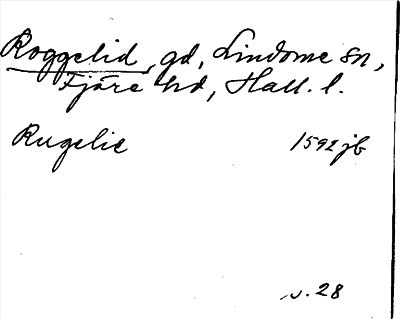 Roggelid, gd, Lindome sn,
Fjäre hd, Hall. l.
Rugelie 1592 jb
s. 28